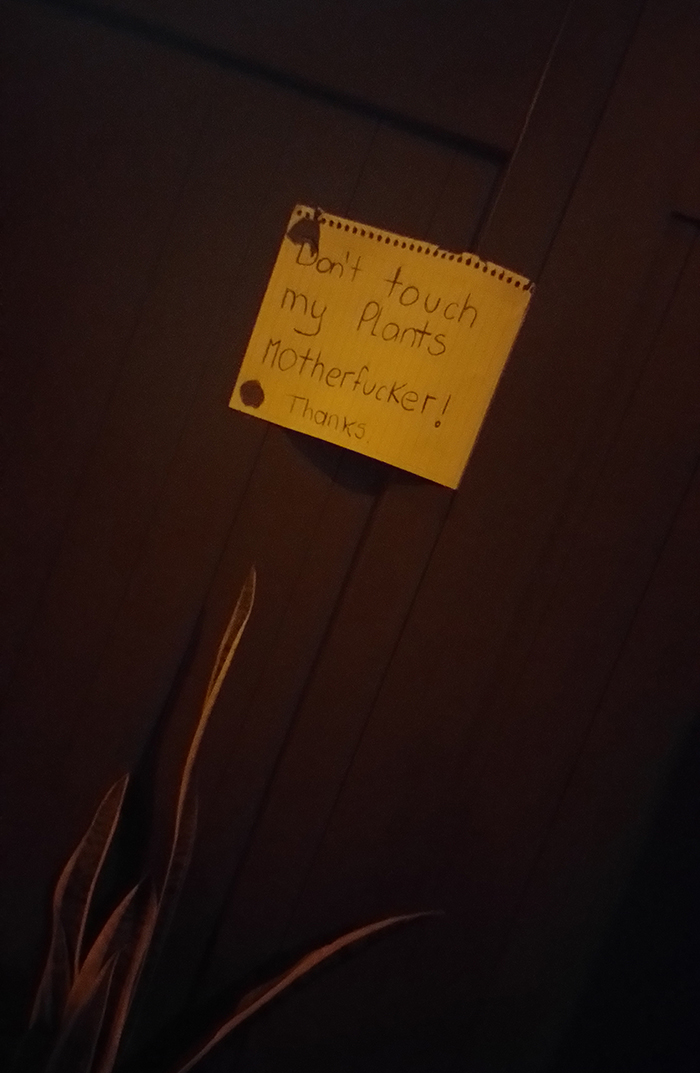 Don't touch
my Plants
Motherfucker!
Thanks.